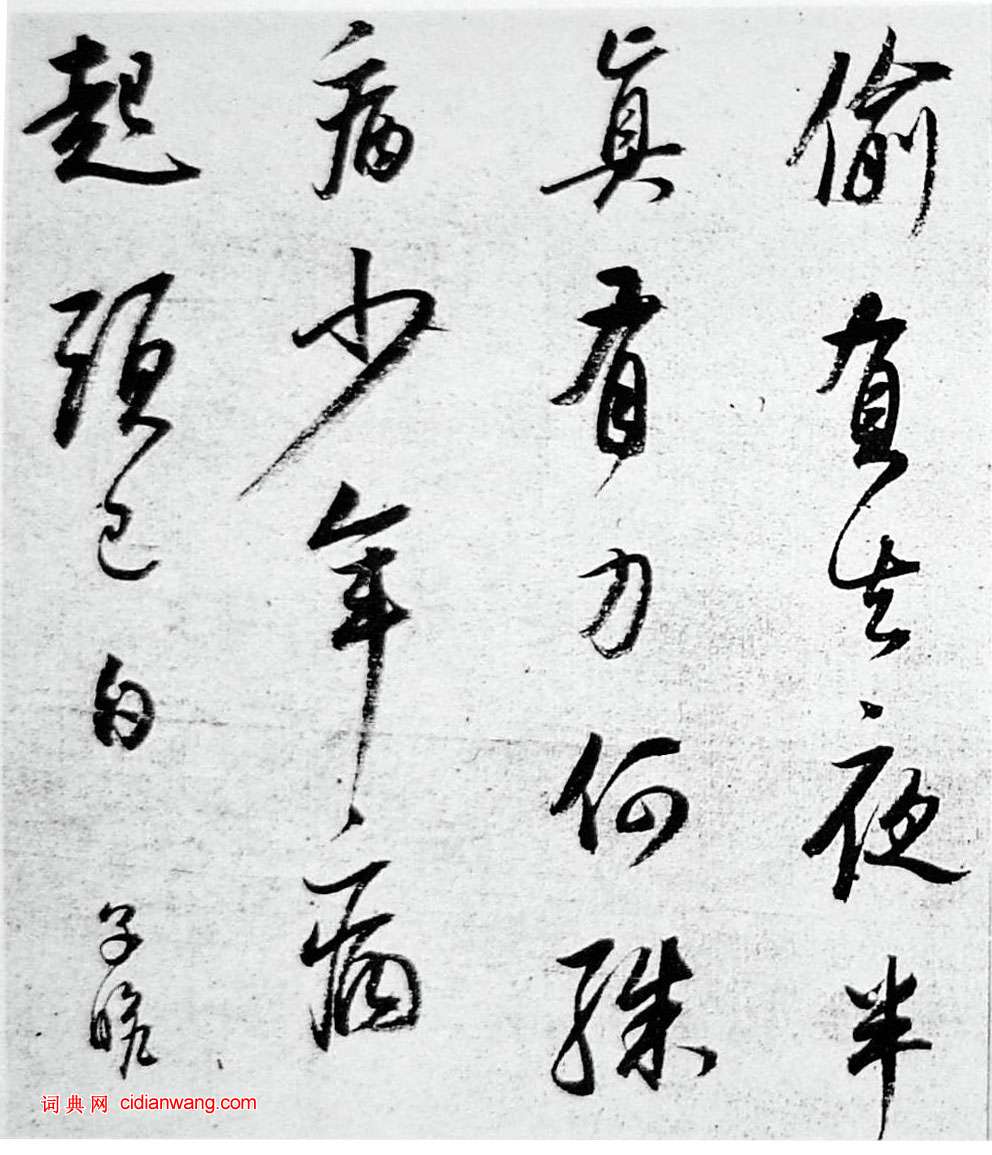 偷負去夜半
真有力何殊
病少年病
起頭已白
子瞻
词典网 cidianwang.com